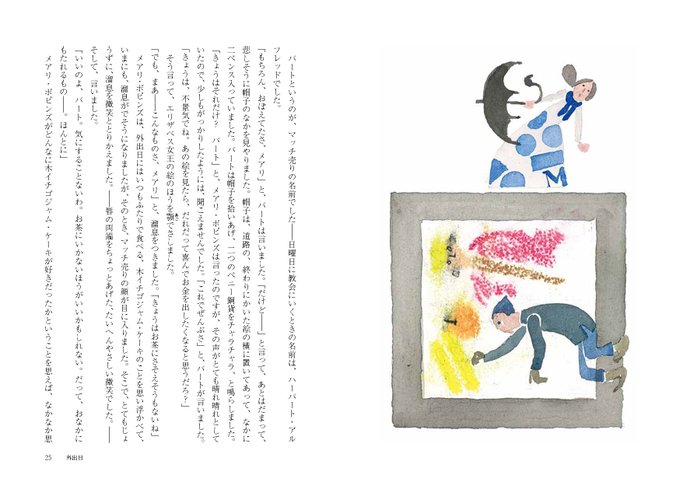 バートというのが、マッチ売りの名前でした――日曜日に教会にいくときの名前は、ハーバート・アル
フレッドでした。
「もちろん、おぼえてたさ、メアリ」と、バートは言いました。「だけど――」と言って、あとはだまって、
悲しそうに帽子のなかを見やりました。帽子は、道路の、終わりにかいた絵の横に置いてあって、なかに
二ペンス入っていました。バートは帽子を拾いあげ、二つのペニー銅貨をチャラチャラ、と鳴らしました。
「きょうはそれだけ? バート」と、メアリ・ポピンズは言ったのですが、その声がとても晴れ晴れとして
いたので、少しもがっかりしたようには、聞こえませんでした。「これでぜんぶさ」と、バートが言いました。
「きょうは、不景気でね。あの絵を見たら、だれだって喜んでお金を出したくなると思うだろ?」
そう言って、エリザベス女王の絵のほうを顎でさしました。
「でも、まあ――こんなものさ、メアリ」と、溜息をつきました。「きょうはお茶にさそえそうもないね」
メアリ・ポピンズは、外出日にはいつもふたりで食べる、木イチゴジャム・ケーキのことを思い浮かべて、
いまにも、溜息がでそうになりましたが、そのとき、マッチ売りの顔が目に入りました。そこで、とてもじょ
うずに、溜息を微笑ととりかえました。――唇の両端をちょっとあげた、たいへんやさしい微笑でした。――
そして、言いました。
「いいのよ、バート。気にすることないわ。お茶にいかないほうがいいかもしれない。だって、おなかに
もたれるもの――。ほんとに」
メアリ・ポピンズがどんなに木イチゴジャム・ケーキが好きだったかということを思えば、なかなか思
25 外出日